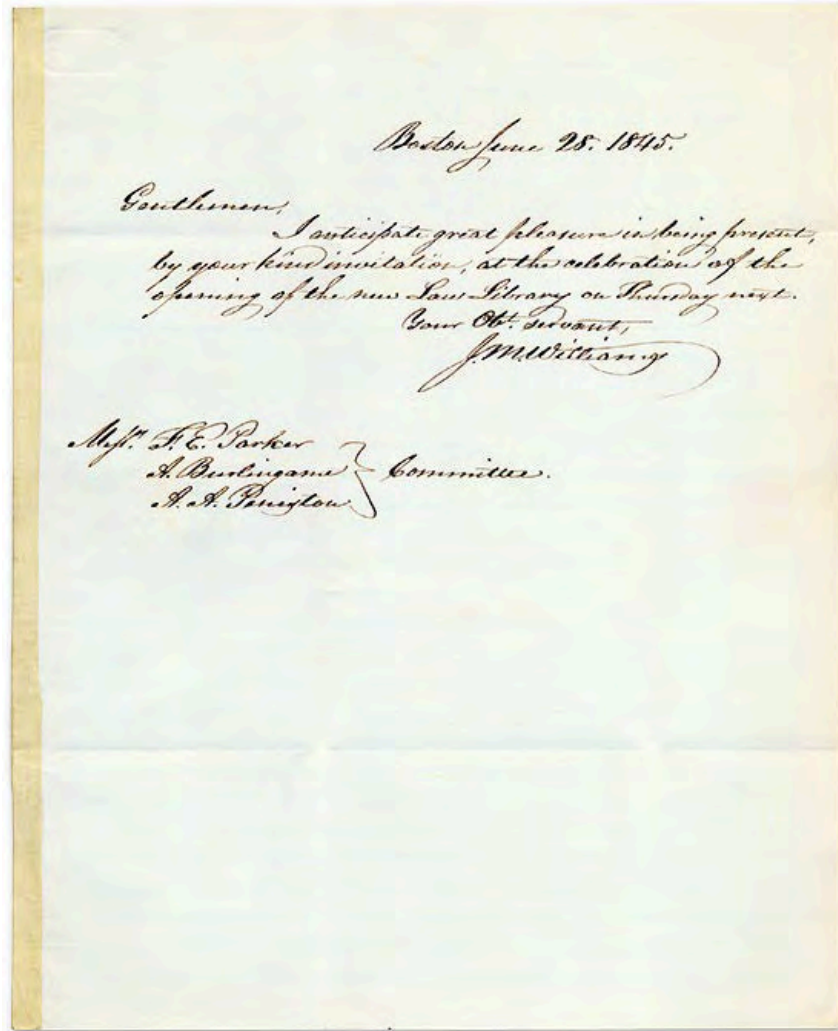 Boston June 28. 1845.
Gentlemen,
I anticipate great pleasure in being present,
by your kind invitation, at the celebration of the
opening of the new Law Library on Thursday next.
Your Obt. servant,
J. M. Williams
Messrs. F. E. Parker
A. Burlingame } Committee.
A. A. Peniston